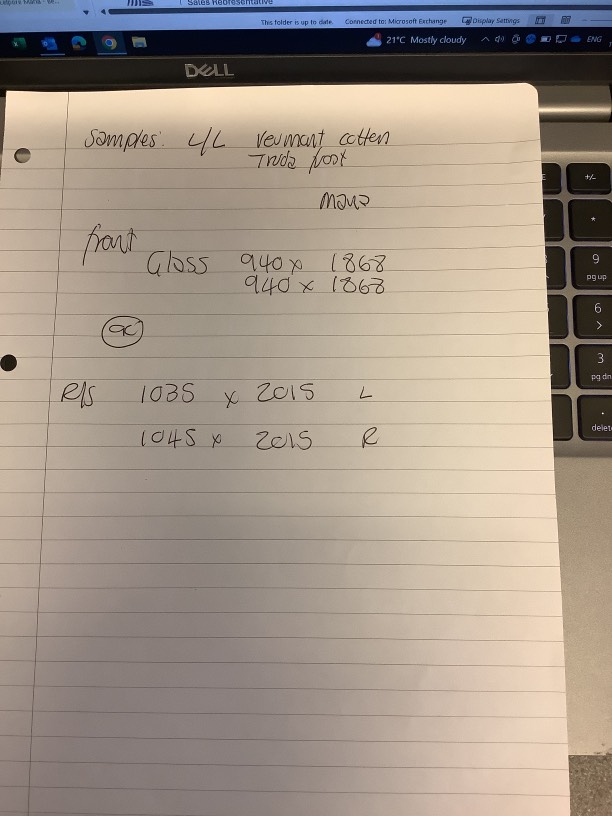 Sales Representative
This folder is up to date. Connected to: Microsoft Exchange Display Settings
21°C Mostly cloudy ENG
DELL
Samples: L/L Veumant cotten
Truda frost
front
Gloss 940 x 1868
940 x 1868
R/S 1035 x 2015 L
1045 x 2015 R
+/-
*
9
pg up
6
>
3
pg dn
.
delete